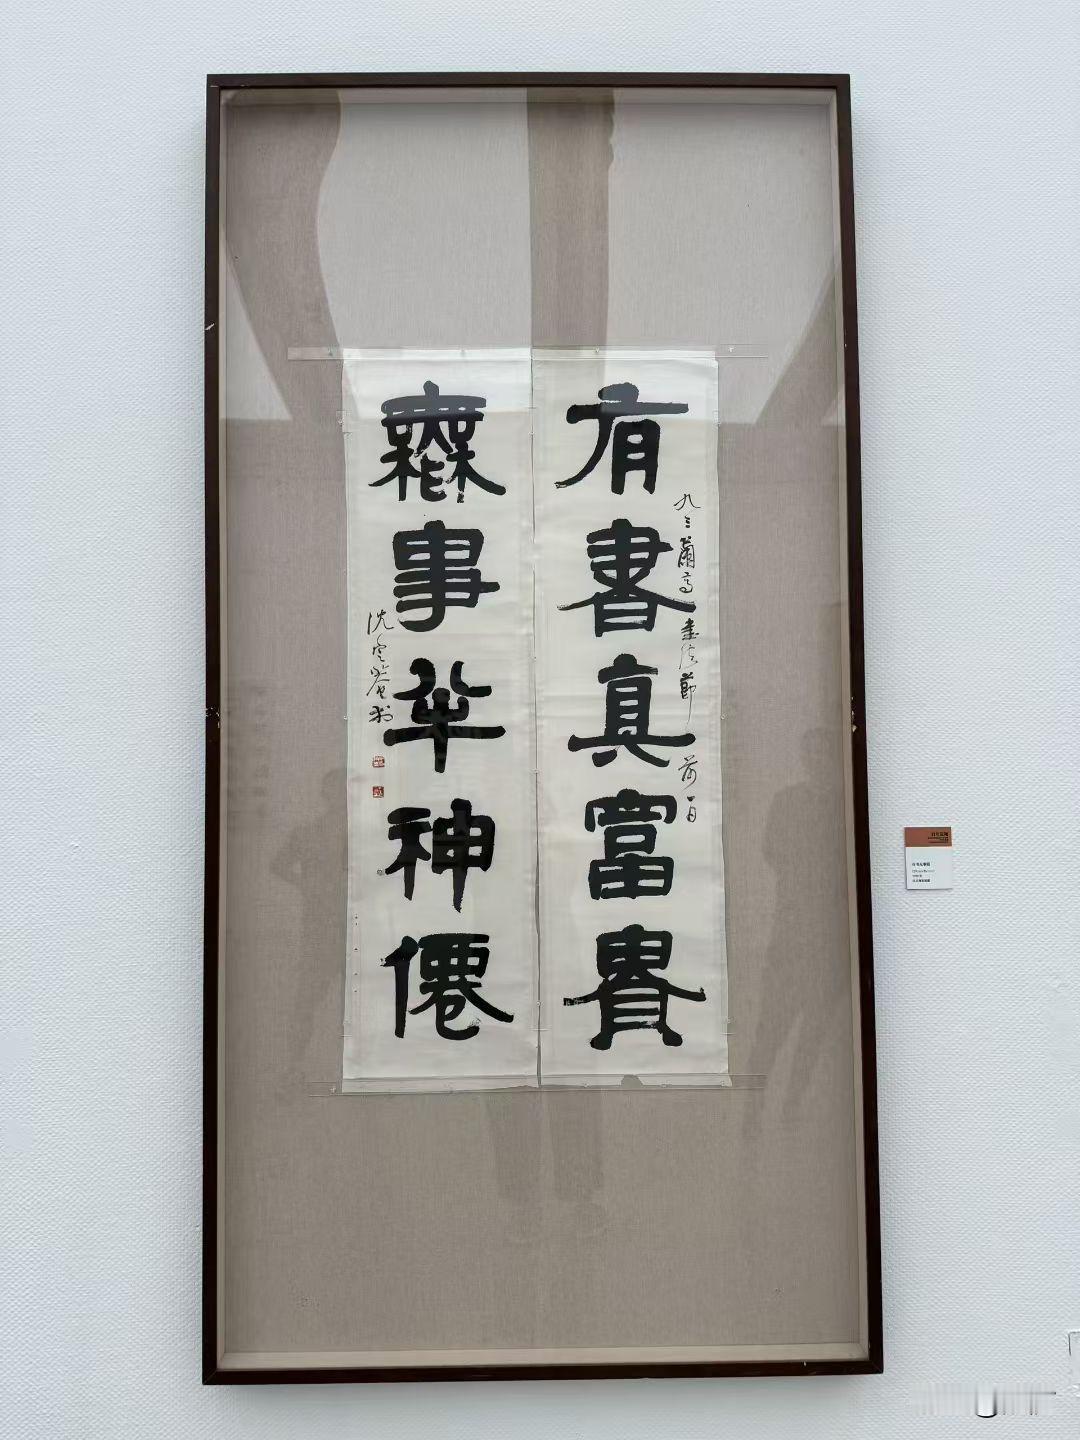 有書真富貴
九三蘭亭書法節前一日
無事半神僊
沈定菴書